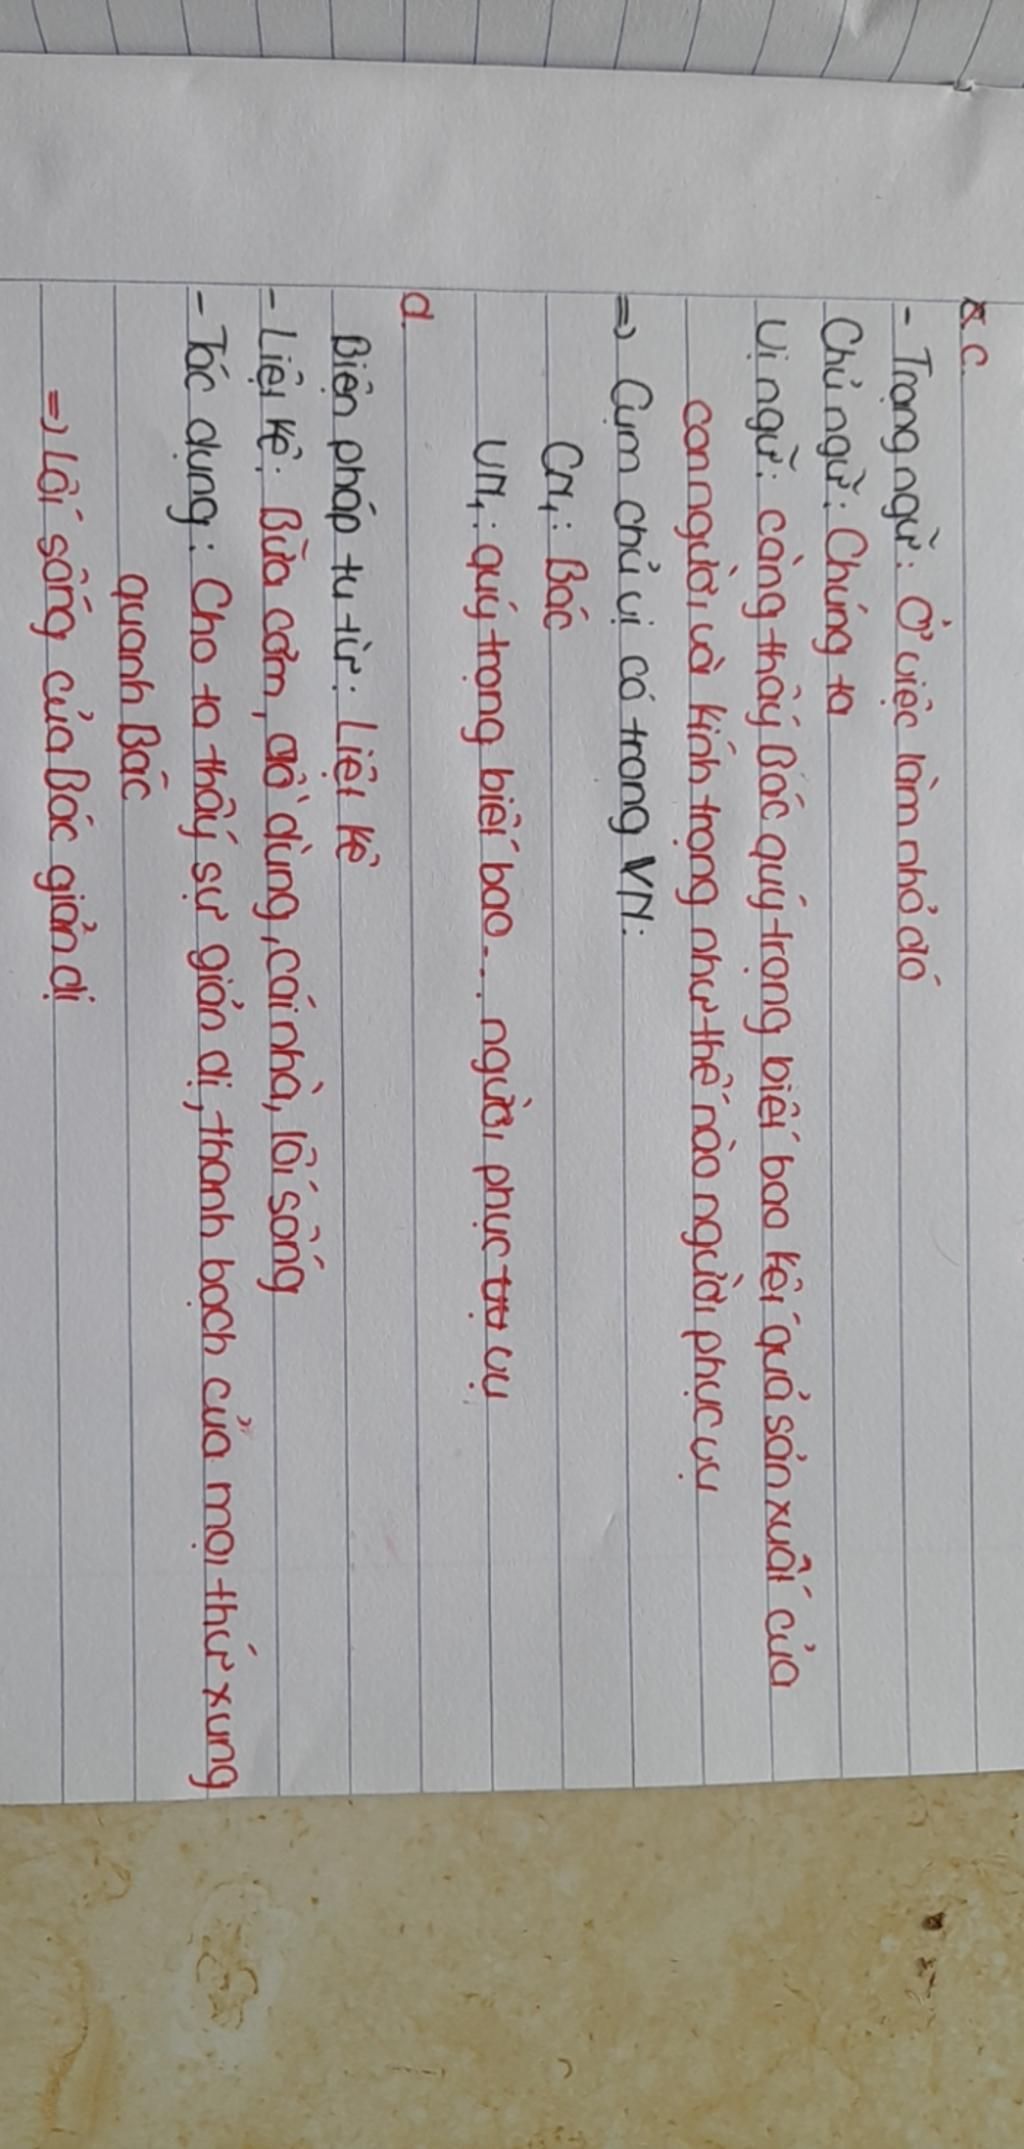 c.
- Trạng ngữ: Ở việc làm nhỏ đó
Chủ ngữ: Chúng ta
Vị ngữ: càng thấy Bác quý trọng biết bao kết quả sản xuất của
con người và kính trọng như thế nào người phục vụ
=> Cụm chủ vị có trong VN:
CN₁: Bác
VN₁: quý trọng biết bao... người phục vụ
d.
Biện pháp tu từ: Liệt kê
- Liệt kê: Bữa cơm, đồ dùng, cái nhà, lối sống
- Tác dụng: Cho ta thấy sự giản dị, thanh bạch của mọi thứ xung
quanh Bác
=> Lối sống của Bác giản dị